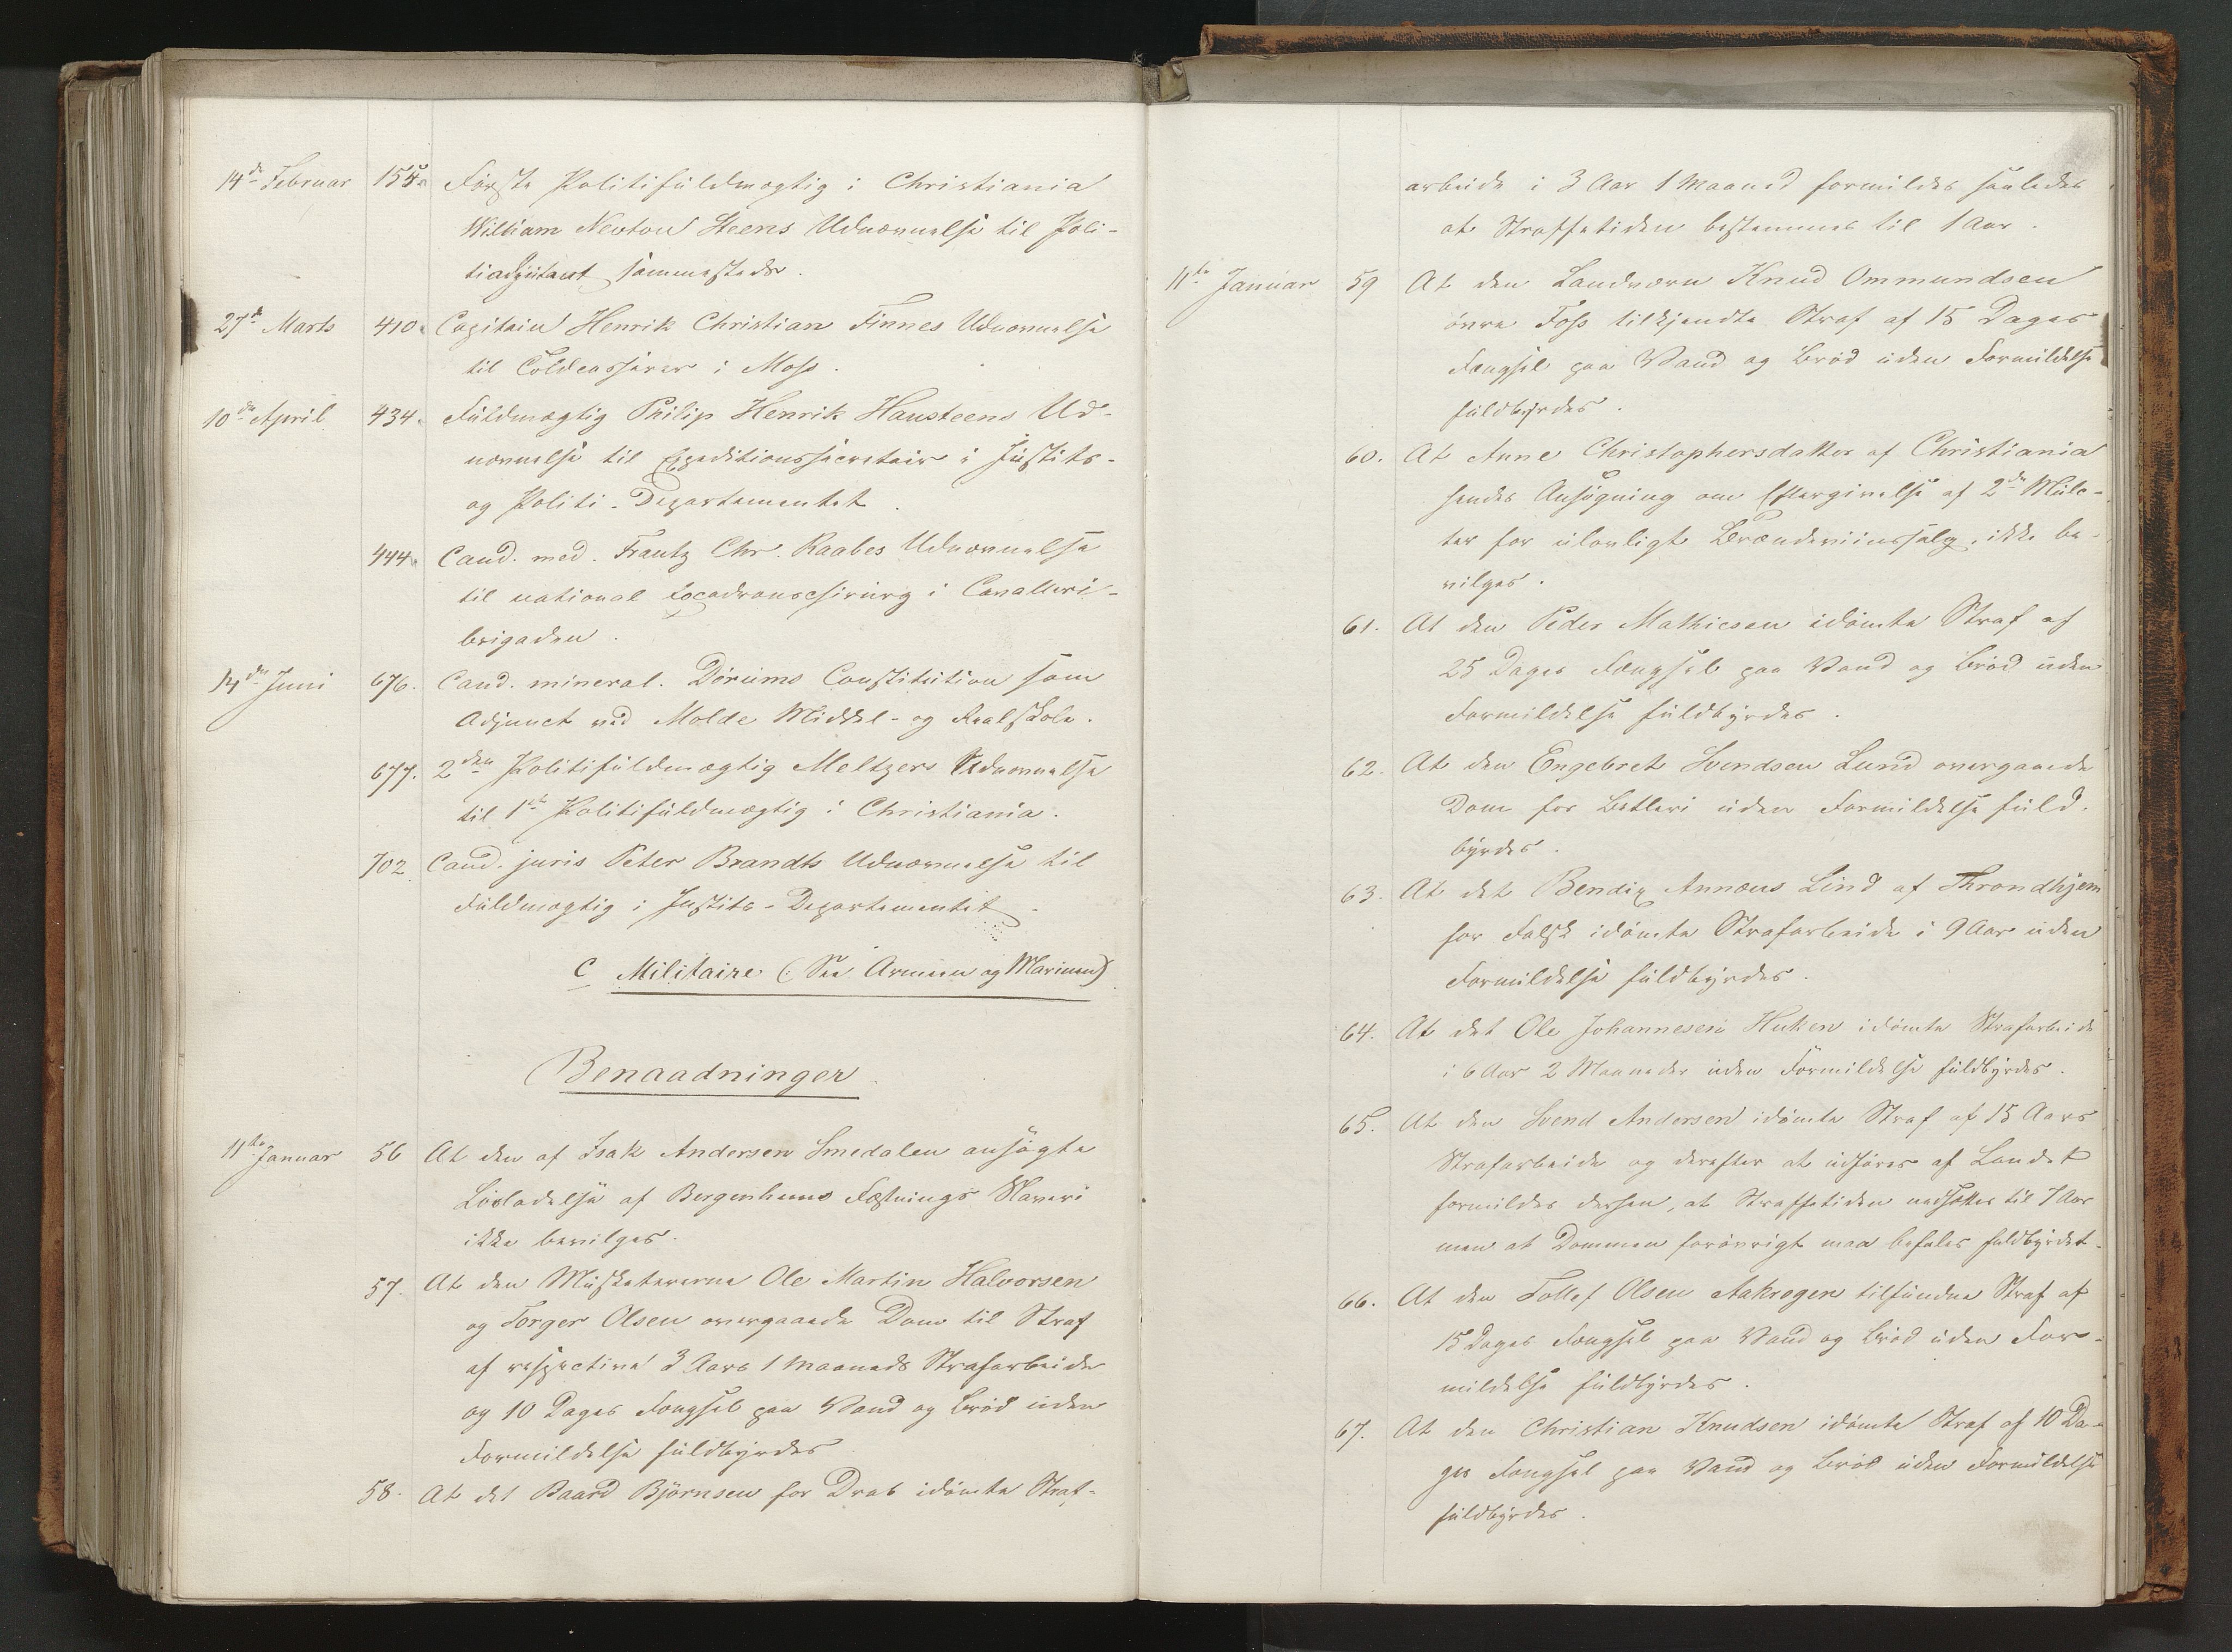 14de Februar 155. Første Politifuldmægtig i Christiania
William Newton Steens Udnævnelse til Poli-
tiadjutant sammesteds.
27de Marts 410. Capitain Henrik Christian Finnes Udnævnelse
til Toldcasserer i Moss.
10de April 434. Fuldmægtig Philip Henrik Hansteens Ud-
nævnelse til Expeditionssecretair i Justits-
og Politi-Departementet.
444. Cand. med. Frantz Chr. Raabes Udnævnelse
til national Escadronschirurg i Cavalleri-
brigaden.
14de Juni 676. Cand. mineral. Dørums Constitution som
Adjunct ved Molde Middel- og Realskole.
677. 2den Politifuldmægtig Meltzers Udnævnelse
til 1ste Politifuldmægtig i Christiania.
702. Cand. juris Peter Brandts Udnævnelse til
Fuldmægtig i Justits-Departementet.
C Militaire (See Armeen og Marinen)
Benaadninger.
11te Januar 56 At den af Isak Andersen Smedalen ansøgte
Løsladelse af Bergenhuus Fæstnings Slaveri
ikke bevilges.
57. At den Musketererne Ole Martin Halvorsen
og Torger Olsen overgaaede Dom til Straf
af respective 3 Aars 1 Maaneds Strafarbeide
og 10 Dages Fængsel paa Vand og Brød uden
Formildelse fuldbyrdes
58. At det Baard Björnsen for Drab idømte Straf-
arbeide i 3 Aar 1 Maaned formildes saaledes
at Straffetiden bestemmes til 1 Aar.
11te Januar 59 At den Landværn Knud Ommundsen
övre Foss tilkjendte Straf af 15 Dages
Fængsel paa Vand og Brød uden Formildelse
fuldbyrdes.
60. At Anne Christophersdatter af Christiania
hendes Ansøgning om Eftergivelse af 2de Mulc-
ter for ulovligt Brændeviinssalg, ikke be-
vilges.
61. At den Peder Mathiesen idømte Straf af
25 Dages Fængsel paa Vand og Brød uden
Formildelse fuldbyrdes.
62. At den Engebret Svendsen Lund overgaaede
Dom for Betleri uden Formildelse fuld-
byrdes.
63. At det Bendix Annæus Lind af Throndhjem
for Falsk idømte Strafarbeide i 9 Aar uden
Formildelse fuldbyrdes.
64. At det Ole Johannesen Huken idømte Strafarbeide
i 6 Aar 2 Maaneder uden Formildelse fuldbyrdes.
65. At den Svend Andersen idømte Straf af 15 Aars
Strafarbeide og derefter at udføres af Landet
formildes derhen, at Straffetiden nedsættes til 7 Aar
men at Dommen forøvrigt maa befales fuldbyrdet.
66. At den Tollef Olsen Aakrogen tilfundne Straf af
15 Dages Fængsel paa Vand og Brød uden For-
mildelse fuldbyrdes.
67. At den Christian Knudsen idømte Straf af 10 Da-
ges Fængsel paa Vand og Brød uden Formildelse
fuldbyrdes.